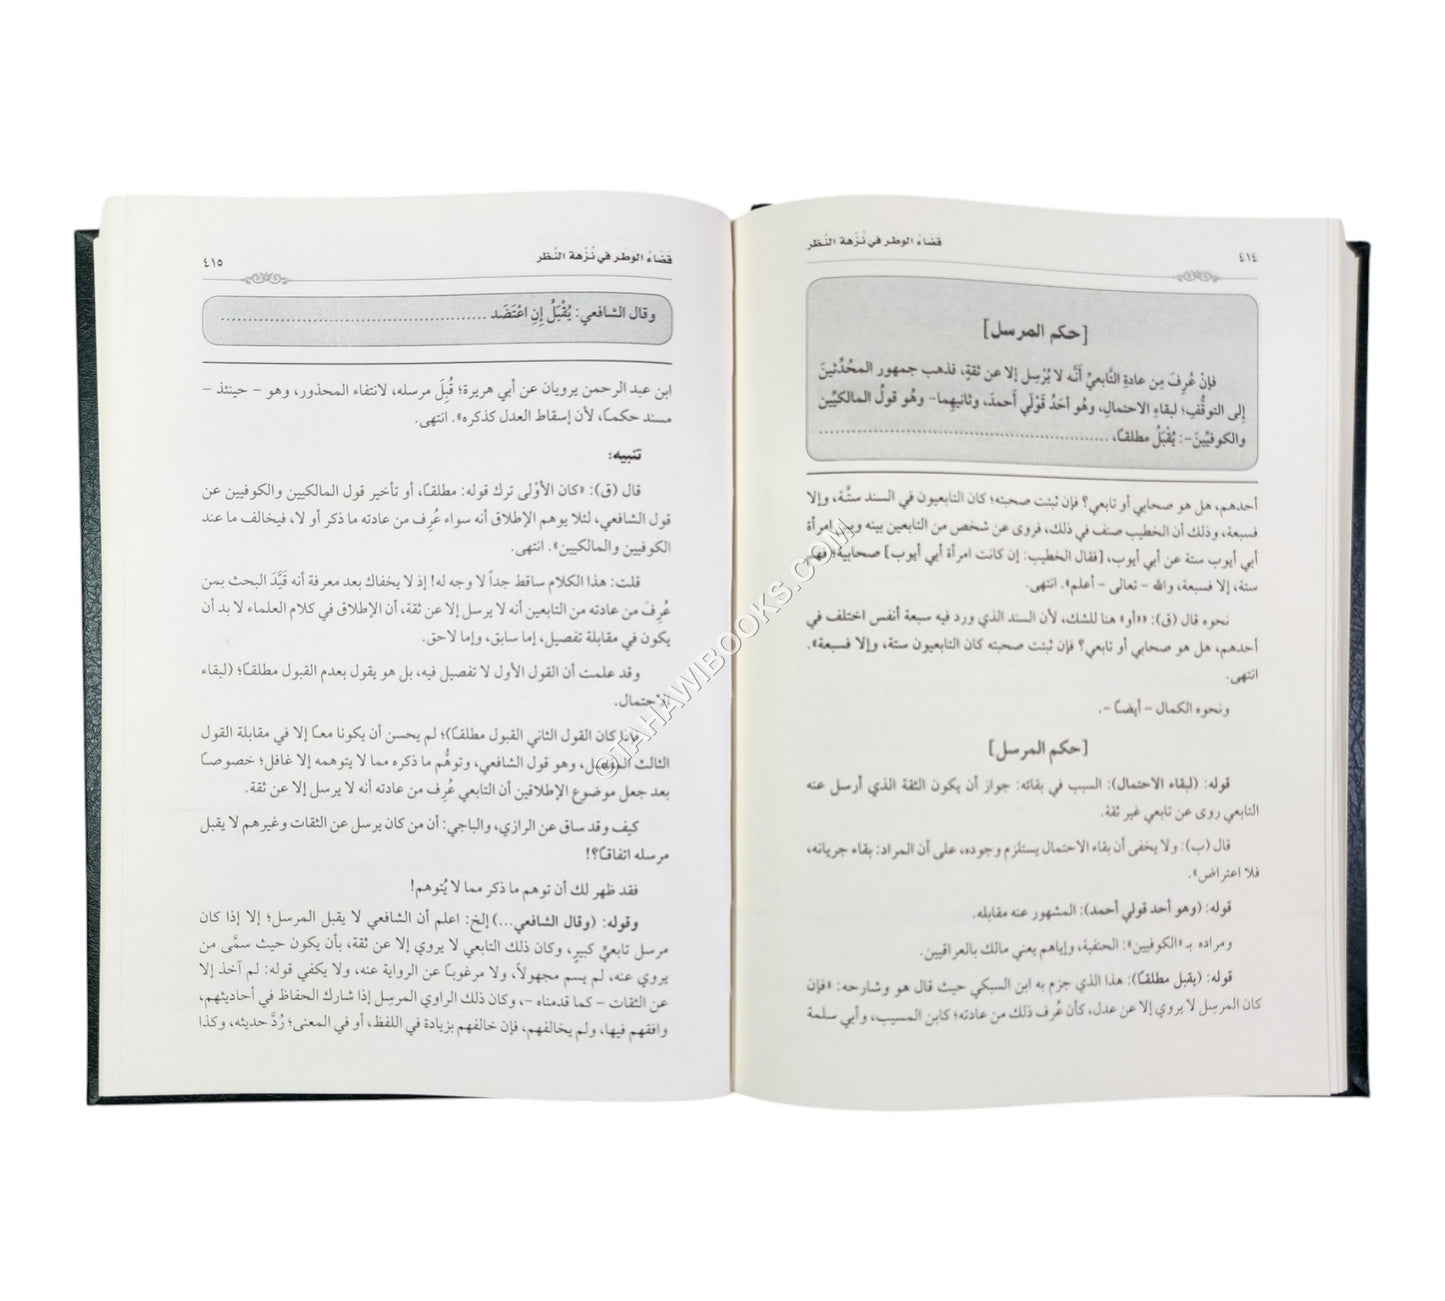 ٤١٤
قَضَاءُ الوَطَر في نُزهة النَّظر
[حكم المرسل]
فإنْ عُرِفَ مِن عادةِ التَّابعيِّ أنَّه لا يُرْسِل إلا عن ثقةٍ، فذهب جمهور المحُدِّثينَ
إلى التوقُّفِ؛ لبقاءِ الاحتمالِ، وهُو أحَدُ قَوْلَي أَحمدَ، وثانيهِما- وهُو قولُ المالكيِّين
والكوفيِّينَ-: يُقْبَلُ مطلقاً،
أحدهم، هل هو صحابي أو تابعي؟ فإن ثبتت صحبته؛ كان التابعيون في السند ستَّة، وإلا
فسبعة، وذلك أن الخطيب صنف في ذلك، فروى عن شخص من التابعين بينه وبين امرأة
أبي أيوب ستة عن أبي أيوب، [فقال الخطيب: إن كانت امرأة أبي أيوب] صحابية؛ فهم
ستة، إلا فسبعة، والله - تعالى - أعلم». انتهى.
نحوه قال (ق): ««أو» هنا للشك، لأن السند الذي ورد فيه سبعة أنفس اختلف في
أحدهم، هل هو صحابي أو تابعي؟ فإن ثبتت صحبته كان التابعيون ستة، وإلا فسبعة».
انتهى.
ونحوه الكمال - أيضاً -.
[حكم المرسل]
قوله: (لبقاء الاحتمال): السبب في بقائه: جواز أن يكون الثقة الذي أرسل عنه
التابعي روى عن تابعي غير ثقة.
قال (ب): ولا يخفى أن بقاء الاحتمال يستلزم وجوده، على أن المراد: بقاء جريانه،
فلا اعتراض».
قوله: (وهو أحد قولي أحمد): المشهور عنه مقابله.
ومراده بـ «الكوفيين»: الحنفية، وإياهم يعني مالك بالعراقيين.
قوله: (يقبل مطلقاً): هذا الذي جزم به ابن السبكي حيث قال هو وشارحه: «فإن
كان المرسِل لا يروي إلا عن عدل، كأن عُرف ذلك من عادته؛ كابن المسيب، وأبي سلمة
قَضَاءُ الوَطَر في نُزهة النَّظر
٤١٥
وقال الشافعي: يُقْبَلُ إِنِ اعْتَضَد
ابن عبد الرحمن يرويان عن أبي هريرة؛ قُبِلَ مرسله، لانتفاء المحذور، وهو - حينئذ -
مسند حكماً، لأن إسقاط العدل كذكره». انتهى.
تنبيه:
قال (ق): «كان الأوْلى ترك قوله: مطلقاً، أو تأخير قول المالكيين والكوفيين عن
قول الشافعي، لئلا يوهم الإطلاق أنه سواء عُرِف من عادته ما ذكر أو لا، فيخالف ما عند
الكوفيين والمالكيين». انتهى.
قلت: هذا الكلام ساقط جداً لا وجه له! إذ لا يخفاك بعد معرفة أنه قَيَّدَ البحث بمن
عُرِفَ من عادته من التابعين أنه لا يرسل إلا عن ثقة، أن الإطلاق في كلام العلماء لا بد أن
يكون في مقابلة تفصيل، إما سابق، وإما لاحق.
وقد علمت أن القول الأول لا تفصيل فيه، بل هو يقول بعدم القبول مطلقاً؛ (لبقاء
الاحتمال.
وإذا كان القول الثاني القبول مطلقاً)؛ لم يحسن أن يكونا معاً إلا في مقابلة القول
الثالث المفصل، وهو قول الشافعي، وتوهُّم ما ذكره مما لا يتوهمه إلا غافل؛ خصوصاً
بعد جعل موضوع الإطلاقين أن التابعي عُرِف من عادته أنه لا يرسل إلا عن ثقة.
كيف وقد ساق عن الرازي، والباجي: أن من كان يرسل عن الثقات وغيرهم لا يقبل
مرسله اتفاقاً؟!
فقد ظهر لك أن توهم ما ذكر مما لا يُتوهم!
وقوله: (وقال الشافعي...) إلخ: اعلم أن الشافعي لا يقبل المرسل؛ إلا إذا كان
مرسل تابعيٍّ كبيرٍ، وكان ذلك التابعي لا يروي إلا عن ثقة، بأن يكون حيث سمَّى من
يروي عنه، لم يسم مجهولاً، ولا مرغوباً عن الرواية عنه، ولا يكفي قوله: لم آخذ إلا
عن الثقات - كما قدمناه -، وكان ذلك الراوي المرسِل إذا شارك الحفاظ في أحاديثهم،
وافقهم فيها، ولم يخالفهم، فإن خالفهم بزيادة في اللفظ، أو في المعنى؛ رُدَّ حديثه، وكذا
©TAHAWIBOOKS.COM